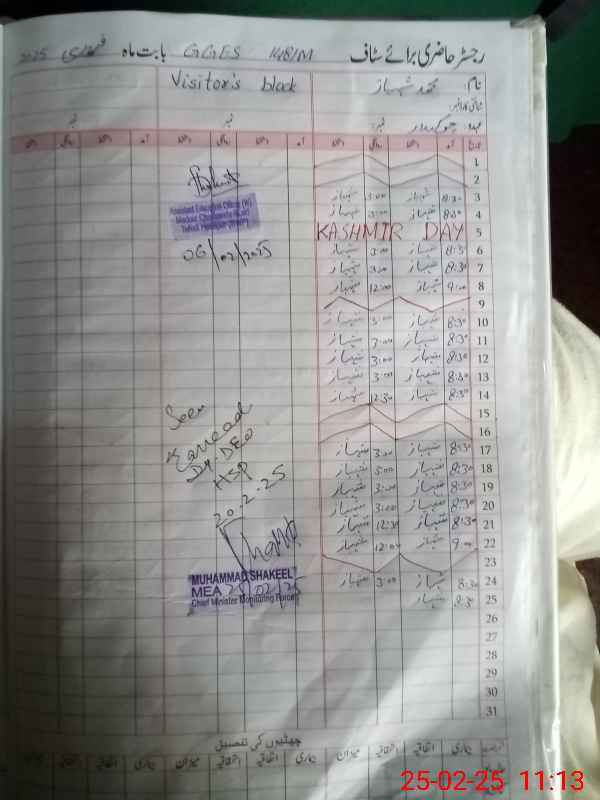 رجسٹر حاضری برائے سٹاف GGES 148/M بابت ماہ فروری 2025
نام: محمد شہباز Visitor's block
عہدہ: چوکیدار نمبر نمبر
تاریخ آمد دستخط روانگی دستخط آمد دستخط روانگی دستخط آمد
1
2
3 8:30 شہباز 3:00 شہباز
4 8:30 شہباز 3:00 شہباز
5 KASHMIR DAY
6 8:30 شہباز 3:00 شہباز
7 8:30 شہباز 3:00 شہباز
8 9:00 شہباز 12:00 شہباز
9
10 8:30 شہباز 3:00 شہباز
11 8:30 شہباز 3:00 شہباز
12 8:30 شہباز 3:00 شہباز
13 8:30 شہباز 3:00 شہباز
14 8:30 شہباز 12:30 شہباز
15
16
17 8:30 شہباز 3:00 شہباز
18 8:30 شہباز 3:00 شہباز
19 8:30 شہباز 3:00 شہباز
20 8:30 شہباز 3:00 شہباز
21 8:30 شہباز 12:30 شہباز
22 9:00 شہباز 12:00 شہباز
23
24 8:30 شہباز 3:00 شہباز
25 8:30 شہباز
26
27
28
29
30
31
Assistant Education Officer (W)
06/02/2025
Seen
Dy. DEO
HSP
20.2.25
MUHAMMAD SHAKEEL
MEA 25/02/25
Chief Minister Monitoring Force
چھٹیوں کی تفصیل
بیماری اتفاقیہ استحقاقیہ میزان بیماری اتفاقیہ استحقاقیہ میزان بیماری اتفاقیہ استحقاقیہ میزان
25-02-25 11:13